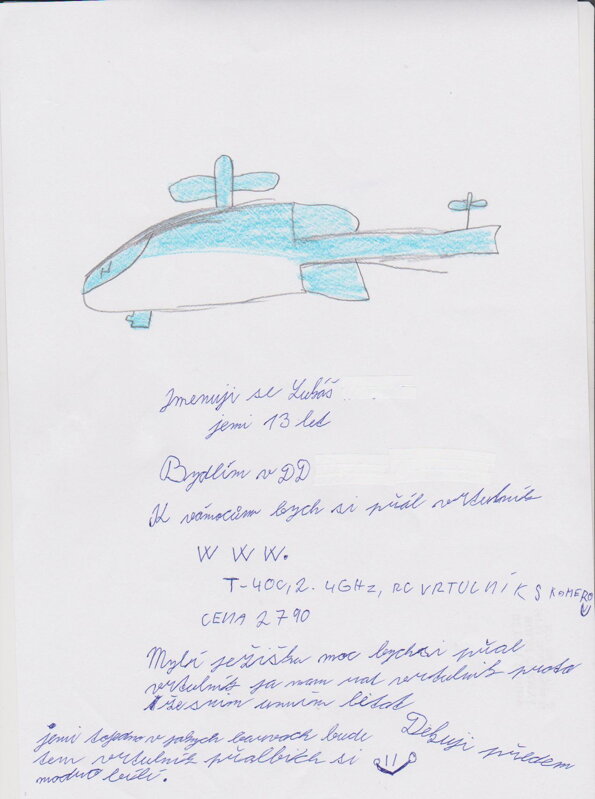 Jmenuji se Lubáš
jemi 13 let
Bydlím v DD
K vámocům bych si přál vrtulník
W W W.
T-40C, 2. 4GHz, RC VRTULNÍK S KOMEROU
CENA 2790
Mylí ježišku moc bychsi přal
vrtulník ja mam rat vrtulnik proto
žesním umím létat
jemi v jakych barvach bude
tem vrtulník přalbich si
modro bílí.
Dekuji předem